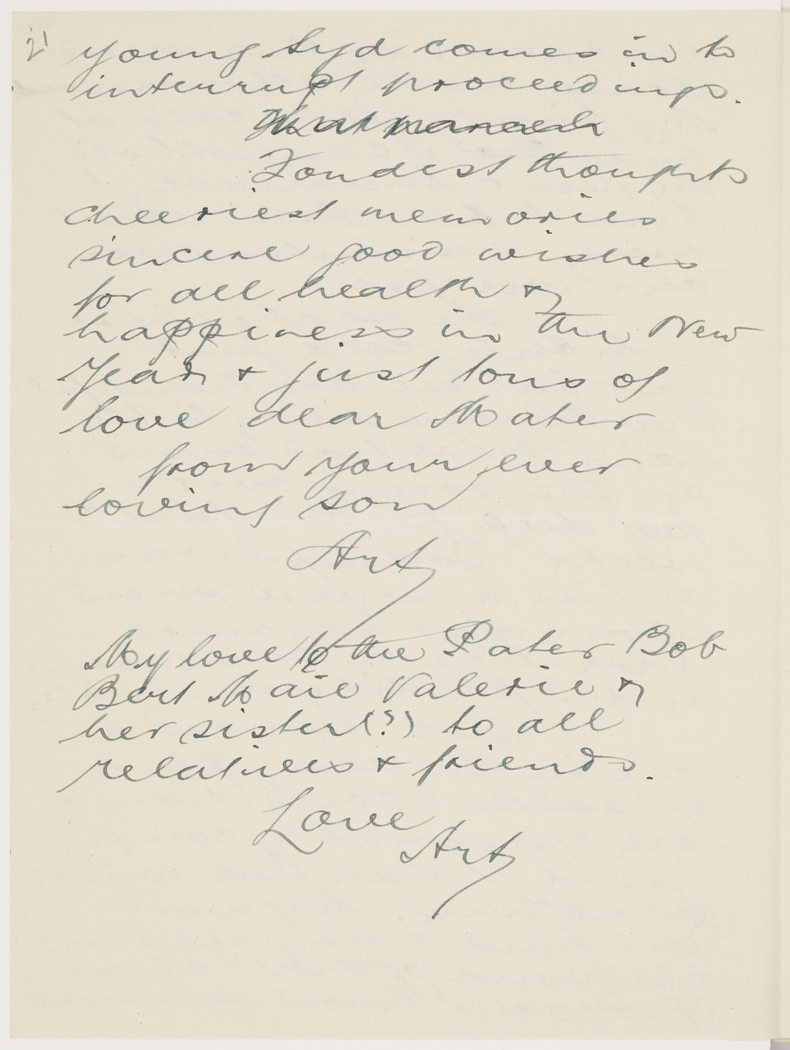 21
young Syd comes in to
interrupt proceedings.
Fondest thoughts
cheeriest memories
sincere good wishes
for all health &
happiness in the New
Year & just tons of
love dear Mater
from your ever
loving son
Art
My love to the Pater Bob
Bert Maie Valerie &
her sister (?) to all
relatives & friends.
Love
Art